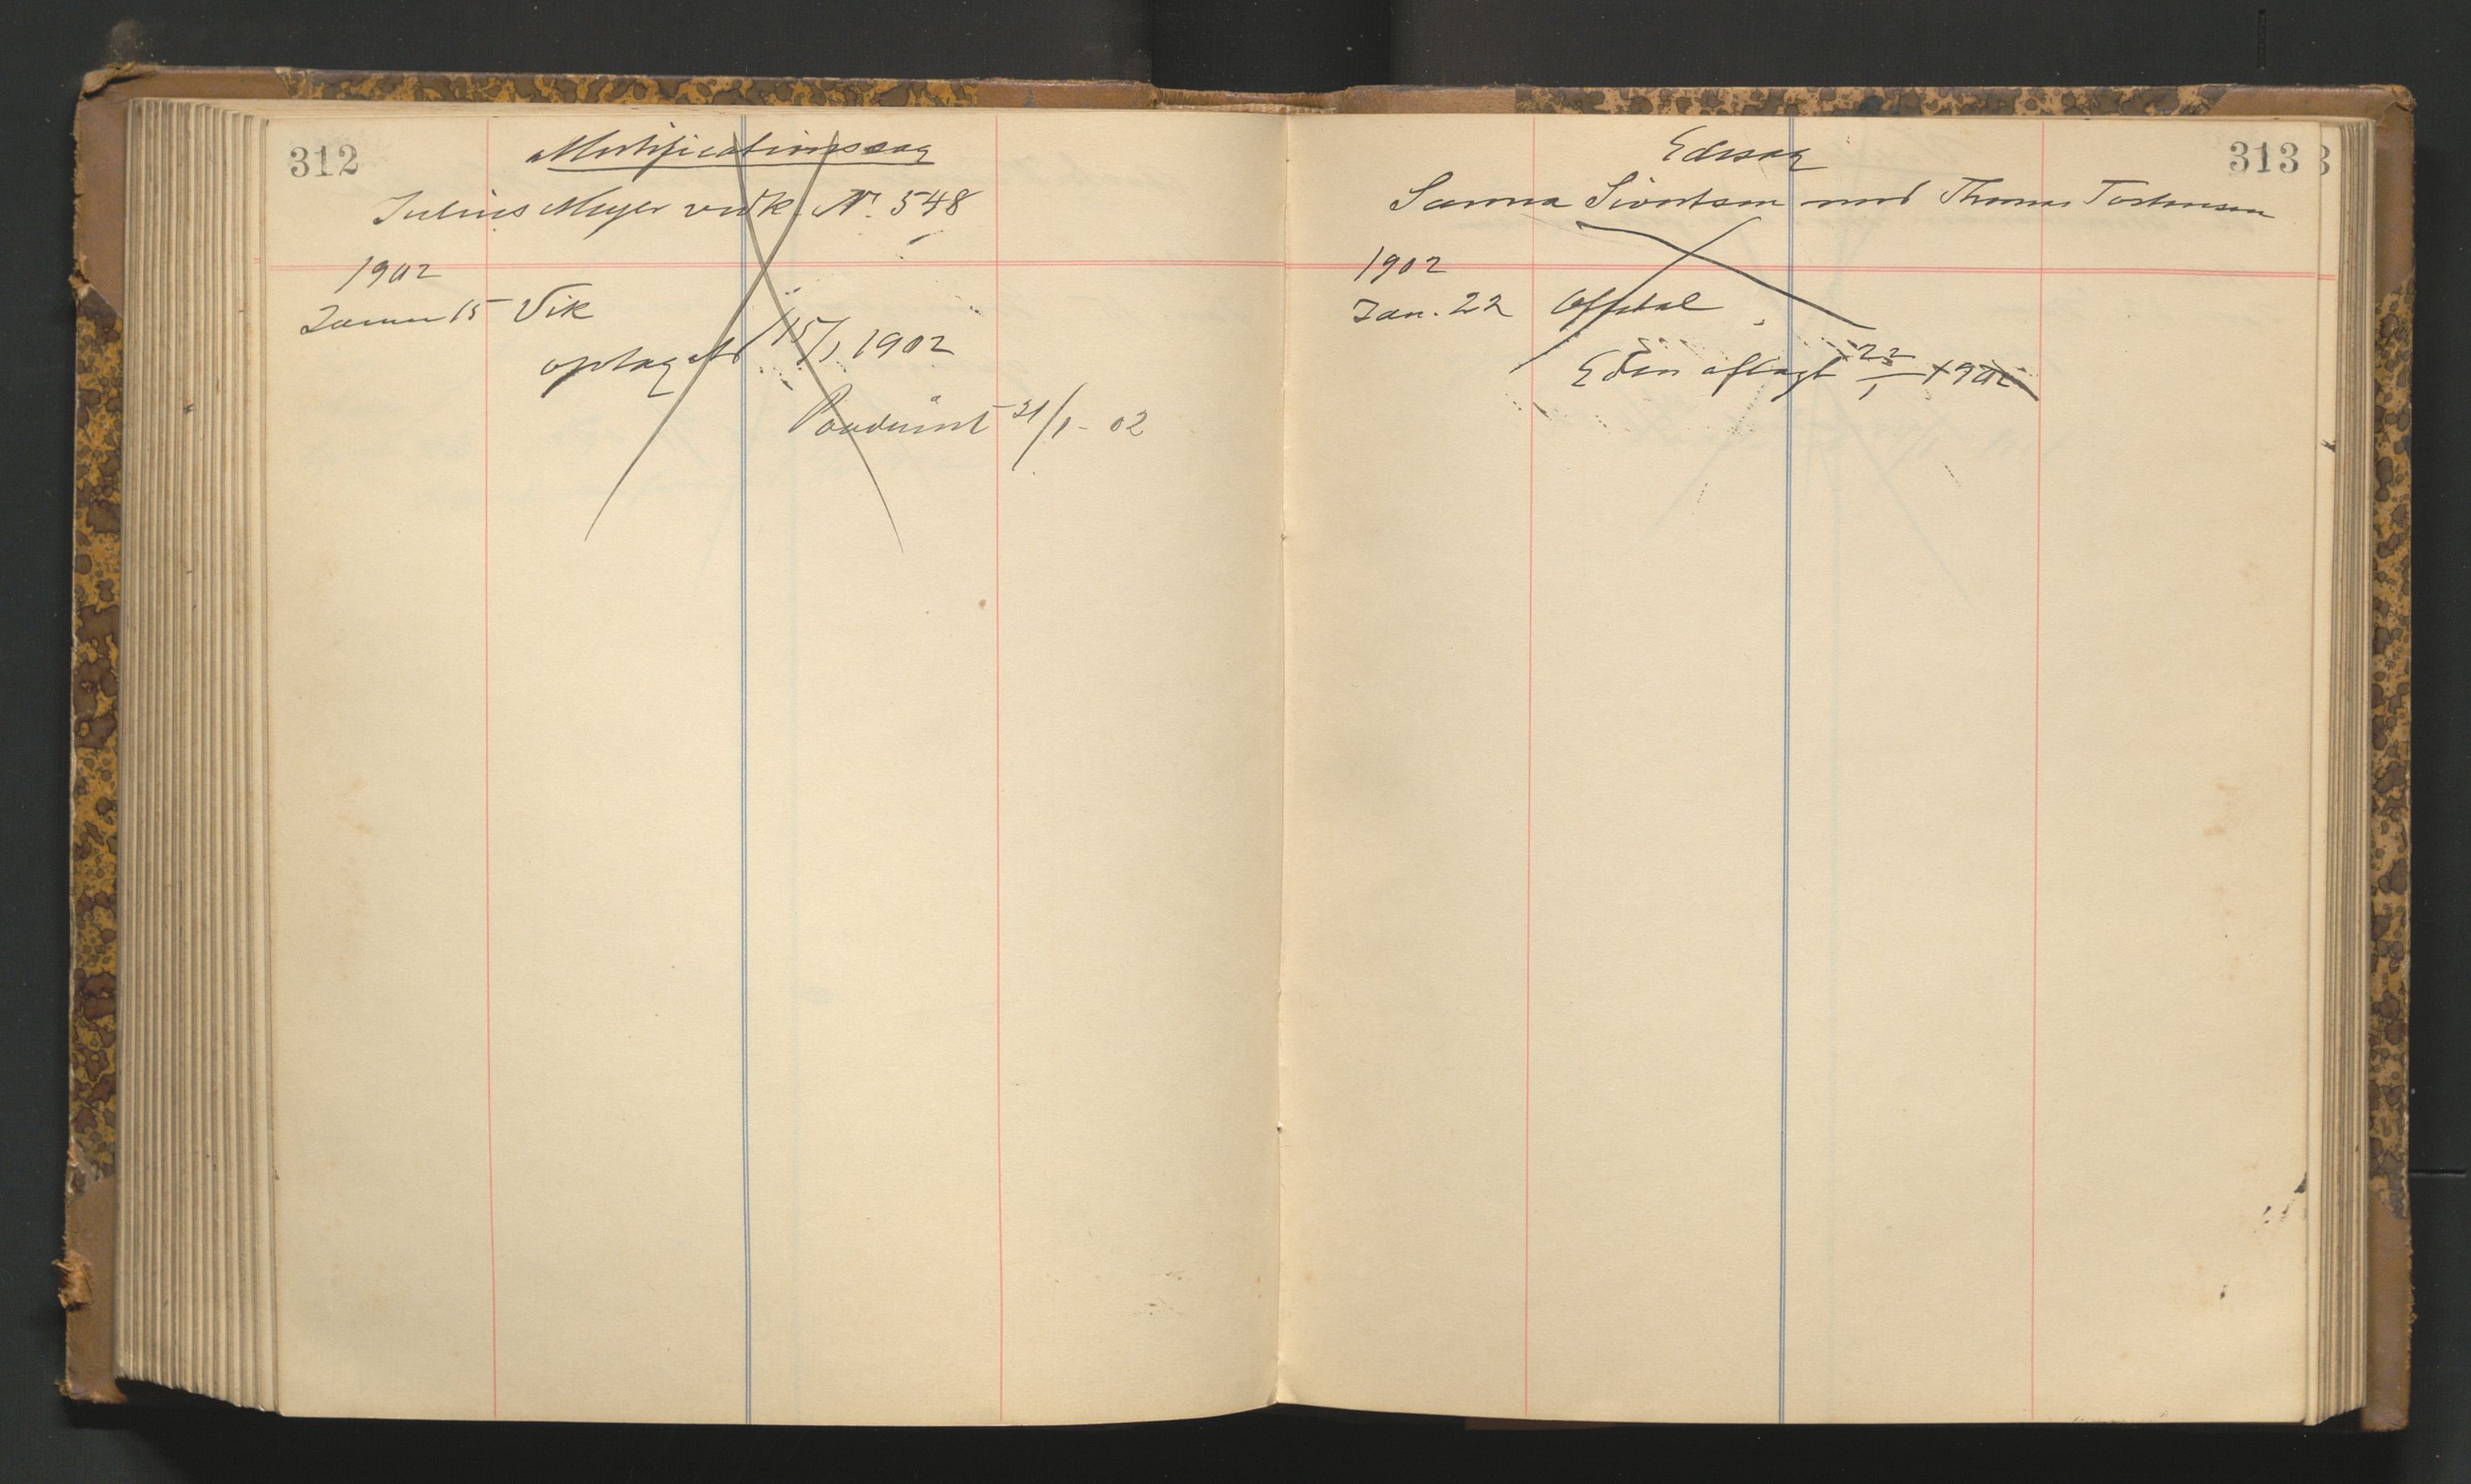 312
Mortificationssag
Julius Meyer vedk. N. 548
1902
Januar 15 Vik
optaget 15/1 1902
Paadømt 21/1 - 02
313
Edssag
Sanna Sivertsen mod Thomas Torstensen
1902
Jan. 22
Eden aflagt 22/1 1902